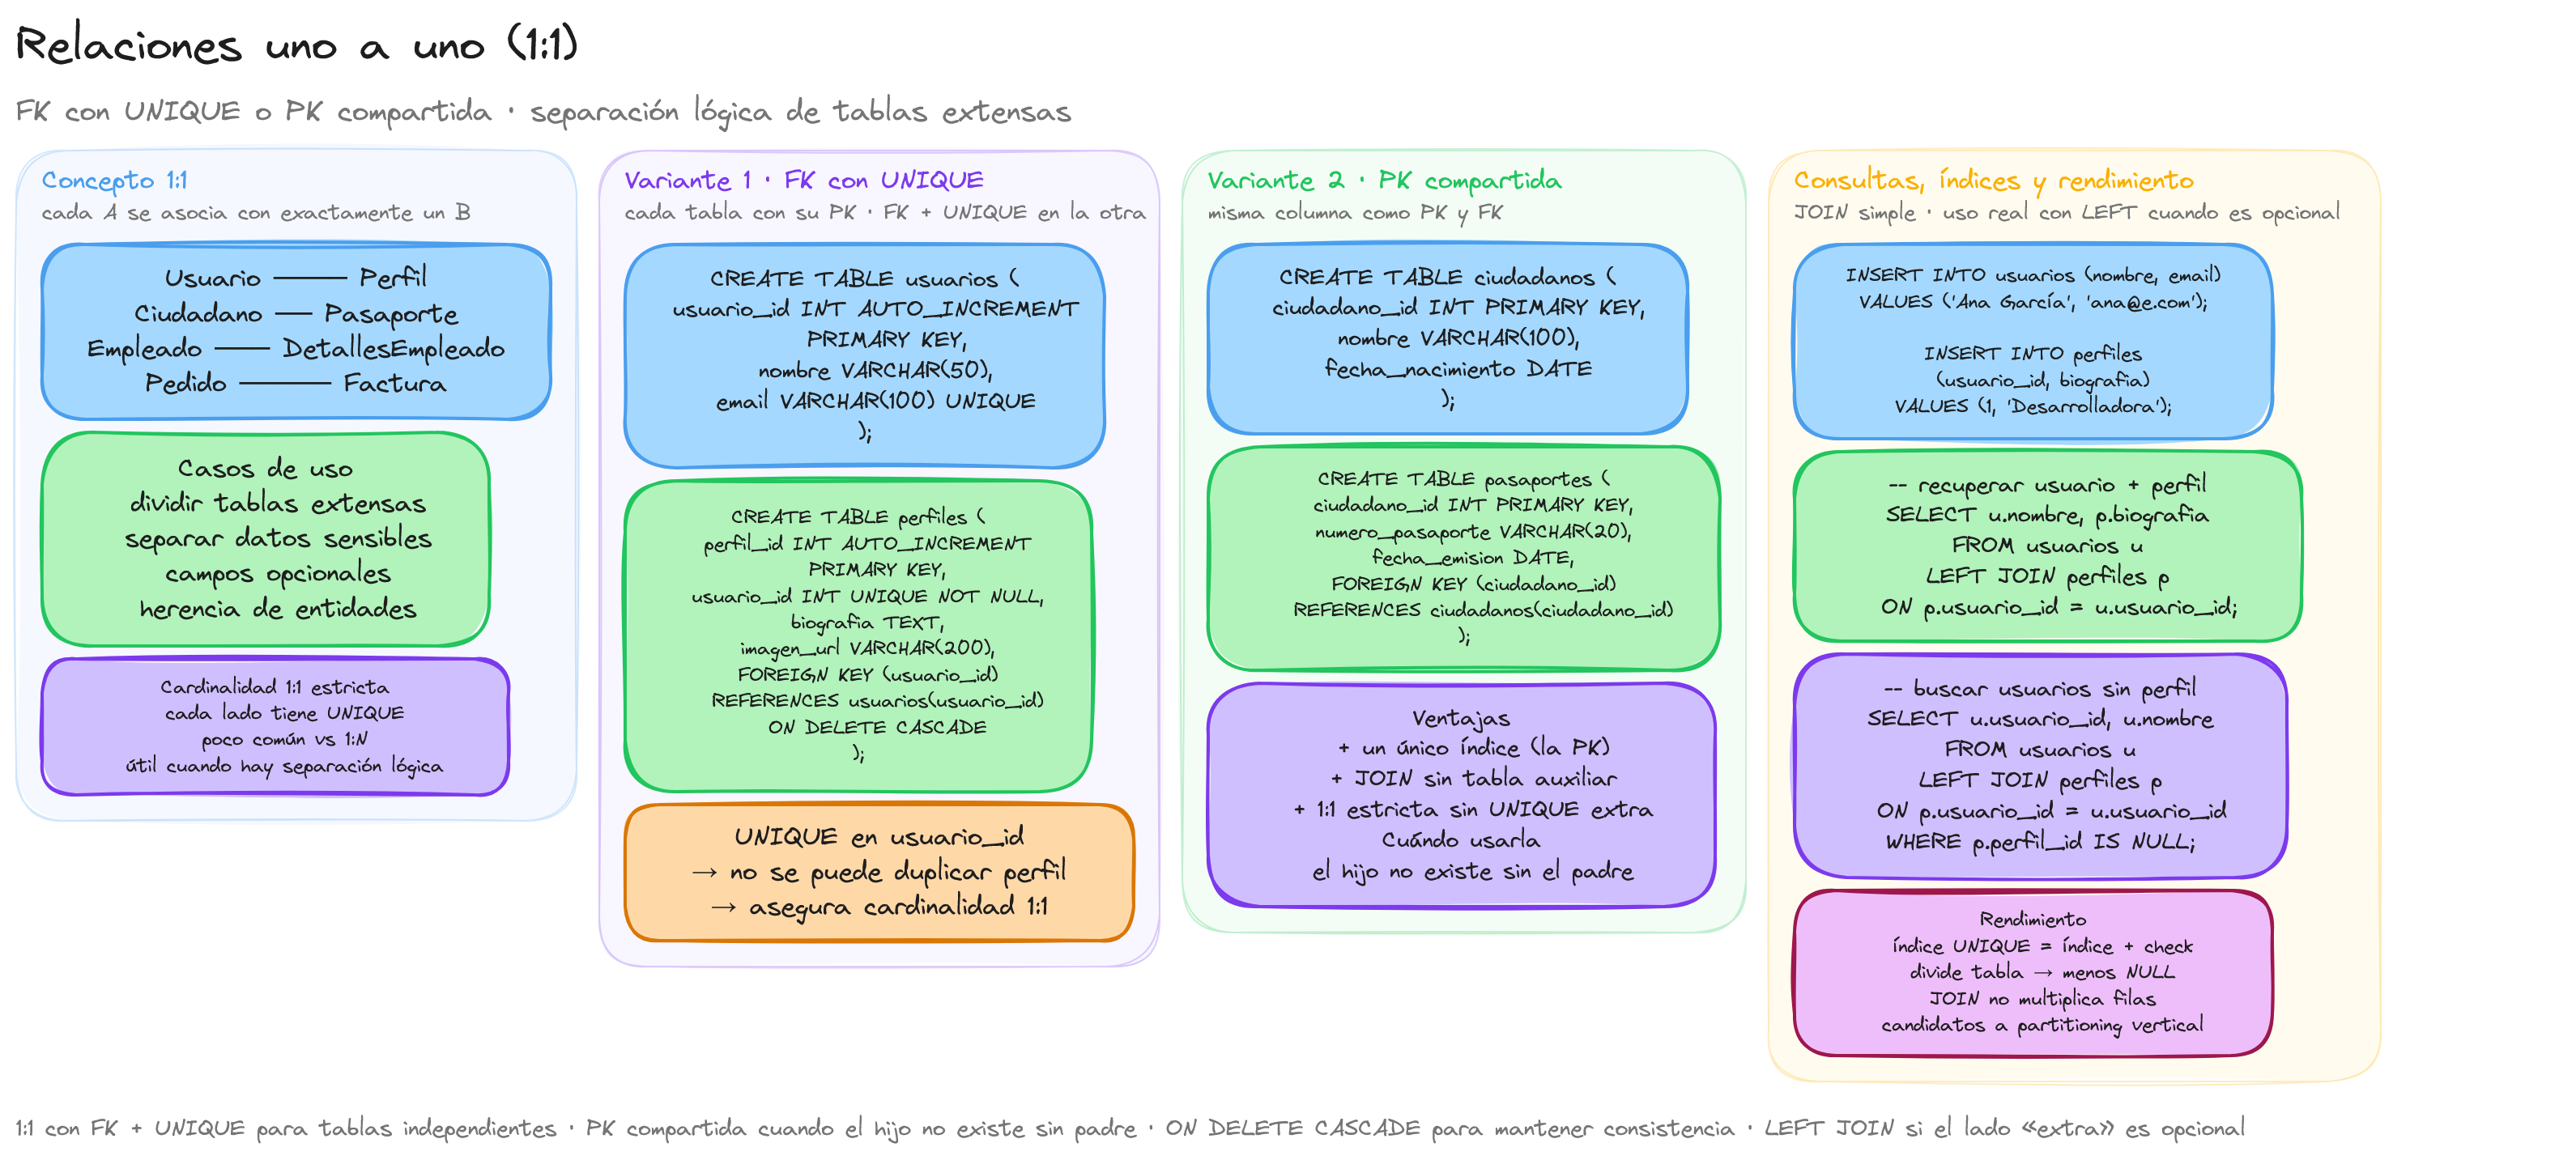 Relaciones uno a uno (1:1)
FK con UNIQUE o PK compartida · separación lógica de tablas extensas
Concepto 1:1
cada A se asocia con exactamente un B
Usuario ──── Perfil
Ciudadano ── Pasaporte
Empleado ─── DetallesEmpleado
Pedido ───── Factura
Casos de uso
dividir tablas extensas
separar datos sensibles
campos opcionales
herencia de entidades
Cardinalidad 1:1 estricta
cada lado tiene UNIQUE
poco común vs 1:N
útil cuando hay separación lógica
Variante 1 · FK con UNIQUE
cada tabla con su PK · FK + UNIQUE en la otra
CREATE TABLE usuarios (
usuario_id INT AUTO_INCREMENT
PRIMARY KEY,
nombre VARCHAR(50),
email VARCHAR(100) UNIQUE
);
CREATE TABLE perfiles (
perfil_id INT AUTO_INCREMENT
PRIMARY KEY,
usuario_id INT UNIQUE NOT NULL,
biografia TEXT,
imagen_url VARCHAR(200),
FOREIGN KEY (usuario_id)
REFERENCES usuarios(usuario_id)
ON DELETE CASCADE
);
UNIQUE en usuario_id
→ no se puede duplicar perfil
→ asegura cardinalidad 1:1
Variante 2 · PK compartida
misma columna como PK y FK
CREATE TABLE ciudadanos (
ciudadano_id INT PRIMARY KEY,
nombre VARCHAR(100),
fecha_nacimiento DATE
);
CREATE TABLE pasaportes (
ciudadano_id INT PRIMARY KEY,
numero_pasaporte VARCHAR(20),
fecha_emision DATE,
FOREIGN KEY (ciudadano_id)
REFERENCES ciudadanos(ciudadano_id)
);
Ventajas
+ un único índice (la PK)
+ JOIN sin tabla auxiliar
+ 1:1 estricta sin UNIQUE extra
Cuándo usarla
el hijo no existe sin el padre
Consultas, índices y rendimiento
JOIN simple · uso real con LEFT cuando es opcional
INSERT INTO usuarios (nombre, email)
VALUES ('Ana García', 'ana@e.com');
INSERT INTO perfiles
(usuario_id, biografia)
VALUES (1, 'Desarrolladora');
-- recuperar usuario + perfil
SELECT u.nombre, p.biografia
FROM usuarios u
LEFT JOIN perfiles p
ON p.usuario_id = u.usuario_id;
-- buscar usuarios sin perfil
SELECT u.usuario_id, u.nombre
FROM usuarios u
LEFT JOIN perfiles p
ON p.usuario_id = u.usuario_id
WHERE p.perfil_id IS NULL;
Rendimiento
índice UNIQUE = índice + check
divide tabla → menos NULL
JOIN no multiplica filas
candidatos a partitioning vertical
1:1 con FK + UNIQUE para tablas independientes · PK compartida cuando el hijo no existe sin padre · ON DELETE CASCADE para mantener consistencia · LEFT JOIN si el lado «extra» es opcional